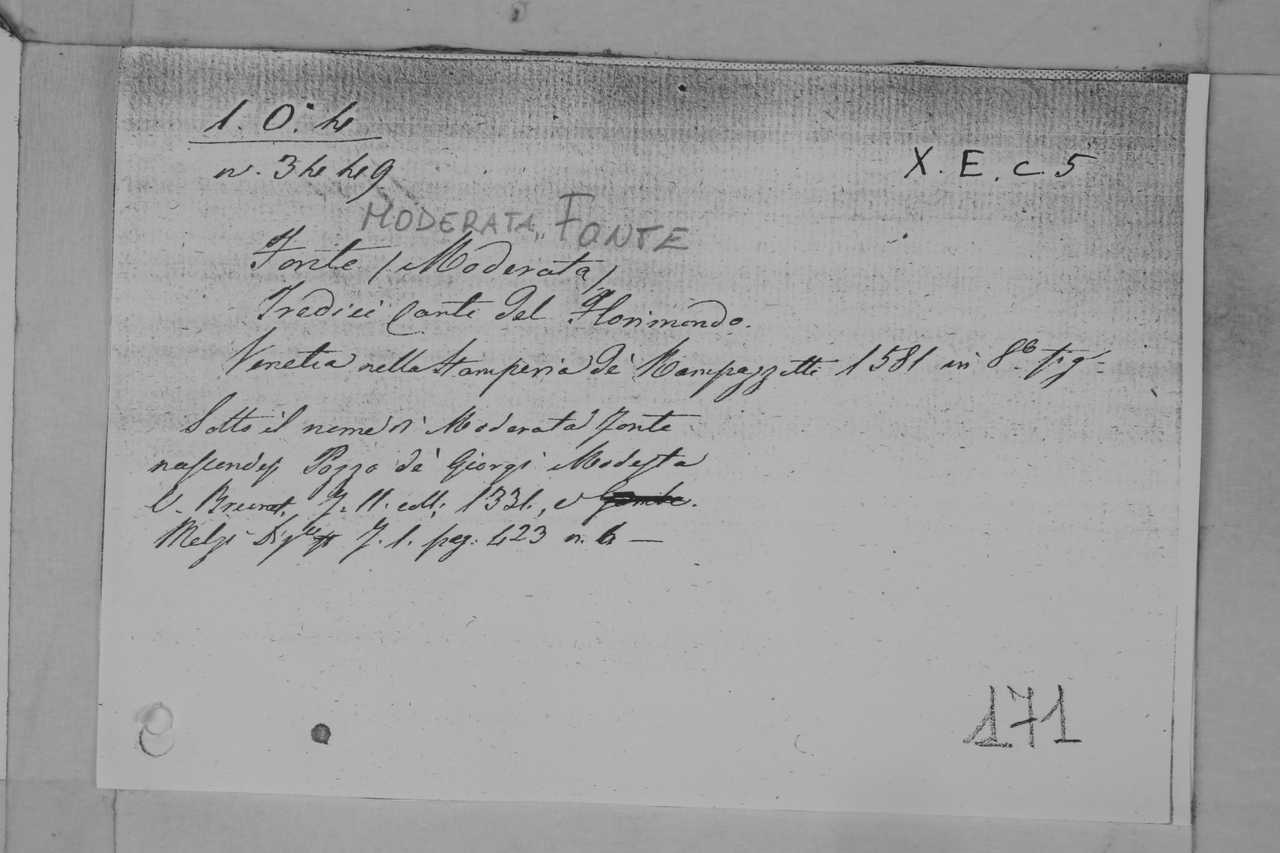 1. O. 4
X. E. c. 5
n. 34449
MODERATA FONTE
Fonte (Moderata)
Tredici Canti del Florimondo.
Venetia nella Stamperia de' Rampazzetti 1581 in 8º fig.
Sotto il nome di Moderata Fonte
nascondesi Pozzo de' Giorgi Modesta
V. Brunet, T. II. col: 1331, e
Melzi T. 1. pag. 423 n.
171